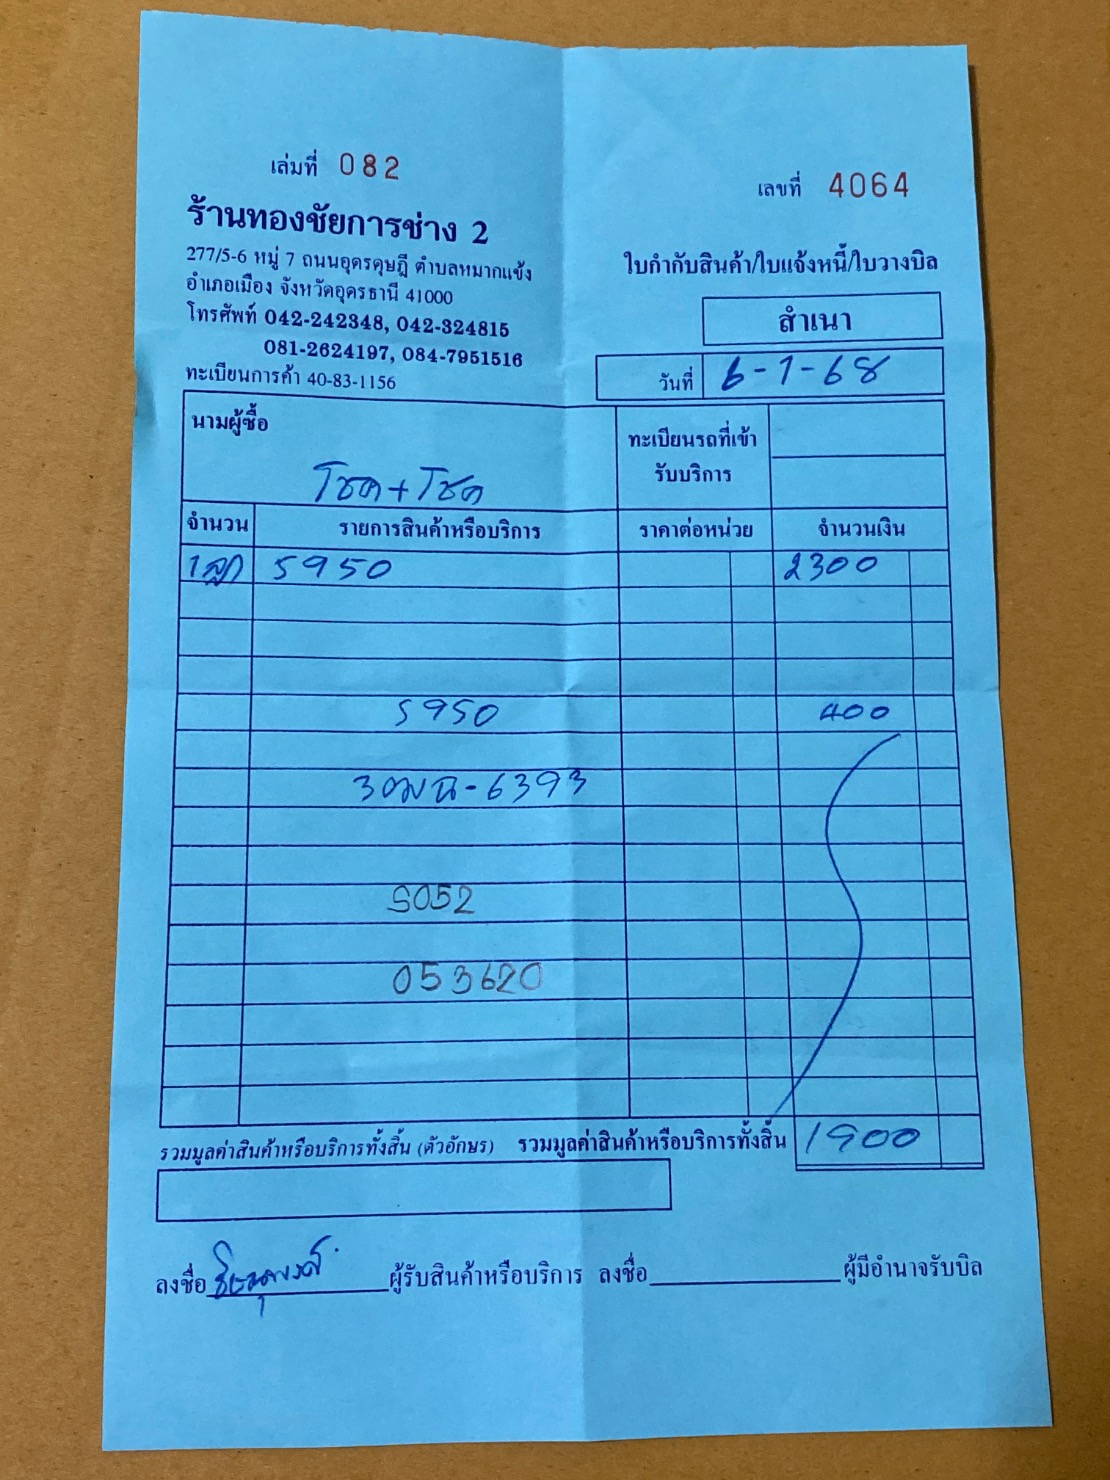 เล่มที่ 082
เลขที่ 4064
ร้านทองชัยการช่าง 2
277/5-6 หมู่ 7 ถนนอุดรดุษฎี ตำบลหมากแข้ง
อำเภอเมือง จังหวัดอุดรธานี 41000
โทรศัพท์ 042-242348, 042-324815
081-2624197, 084-7951516
ทะเบียนการค้า 40-83-1156
ใบกำกับสินค้า/ใบแจ้งหนี้/ใบวางบิล
สำเนา
วันที่ 6-1-68
นามผู้ซื้อ
โชค+โชค
ทะเบียนรถที่เข้า
รับบริการ
จำนวน รายการสินค้าหรือบริการ ราคาต่อหน่วย จำนวนเงิน
1 ลูก 5950 2300
5950 400
-6393
S052
053620
รวมมูลค่าสินค้าหรือบริการทั้งสิ้น (ตัวอักษร) รวมมูลค่าสินค้าหรือบริการทั้งสิ้น 1900
ลงชื่อ ผู้รับสินค้าหรือบริการ ลงชื่อ ผู้มีอำนาจรับบิล